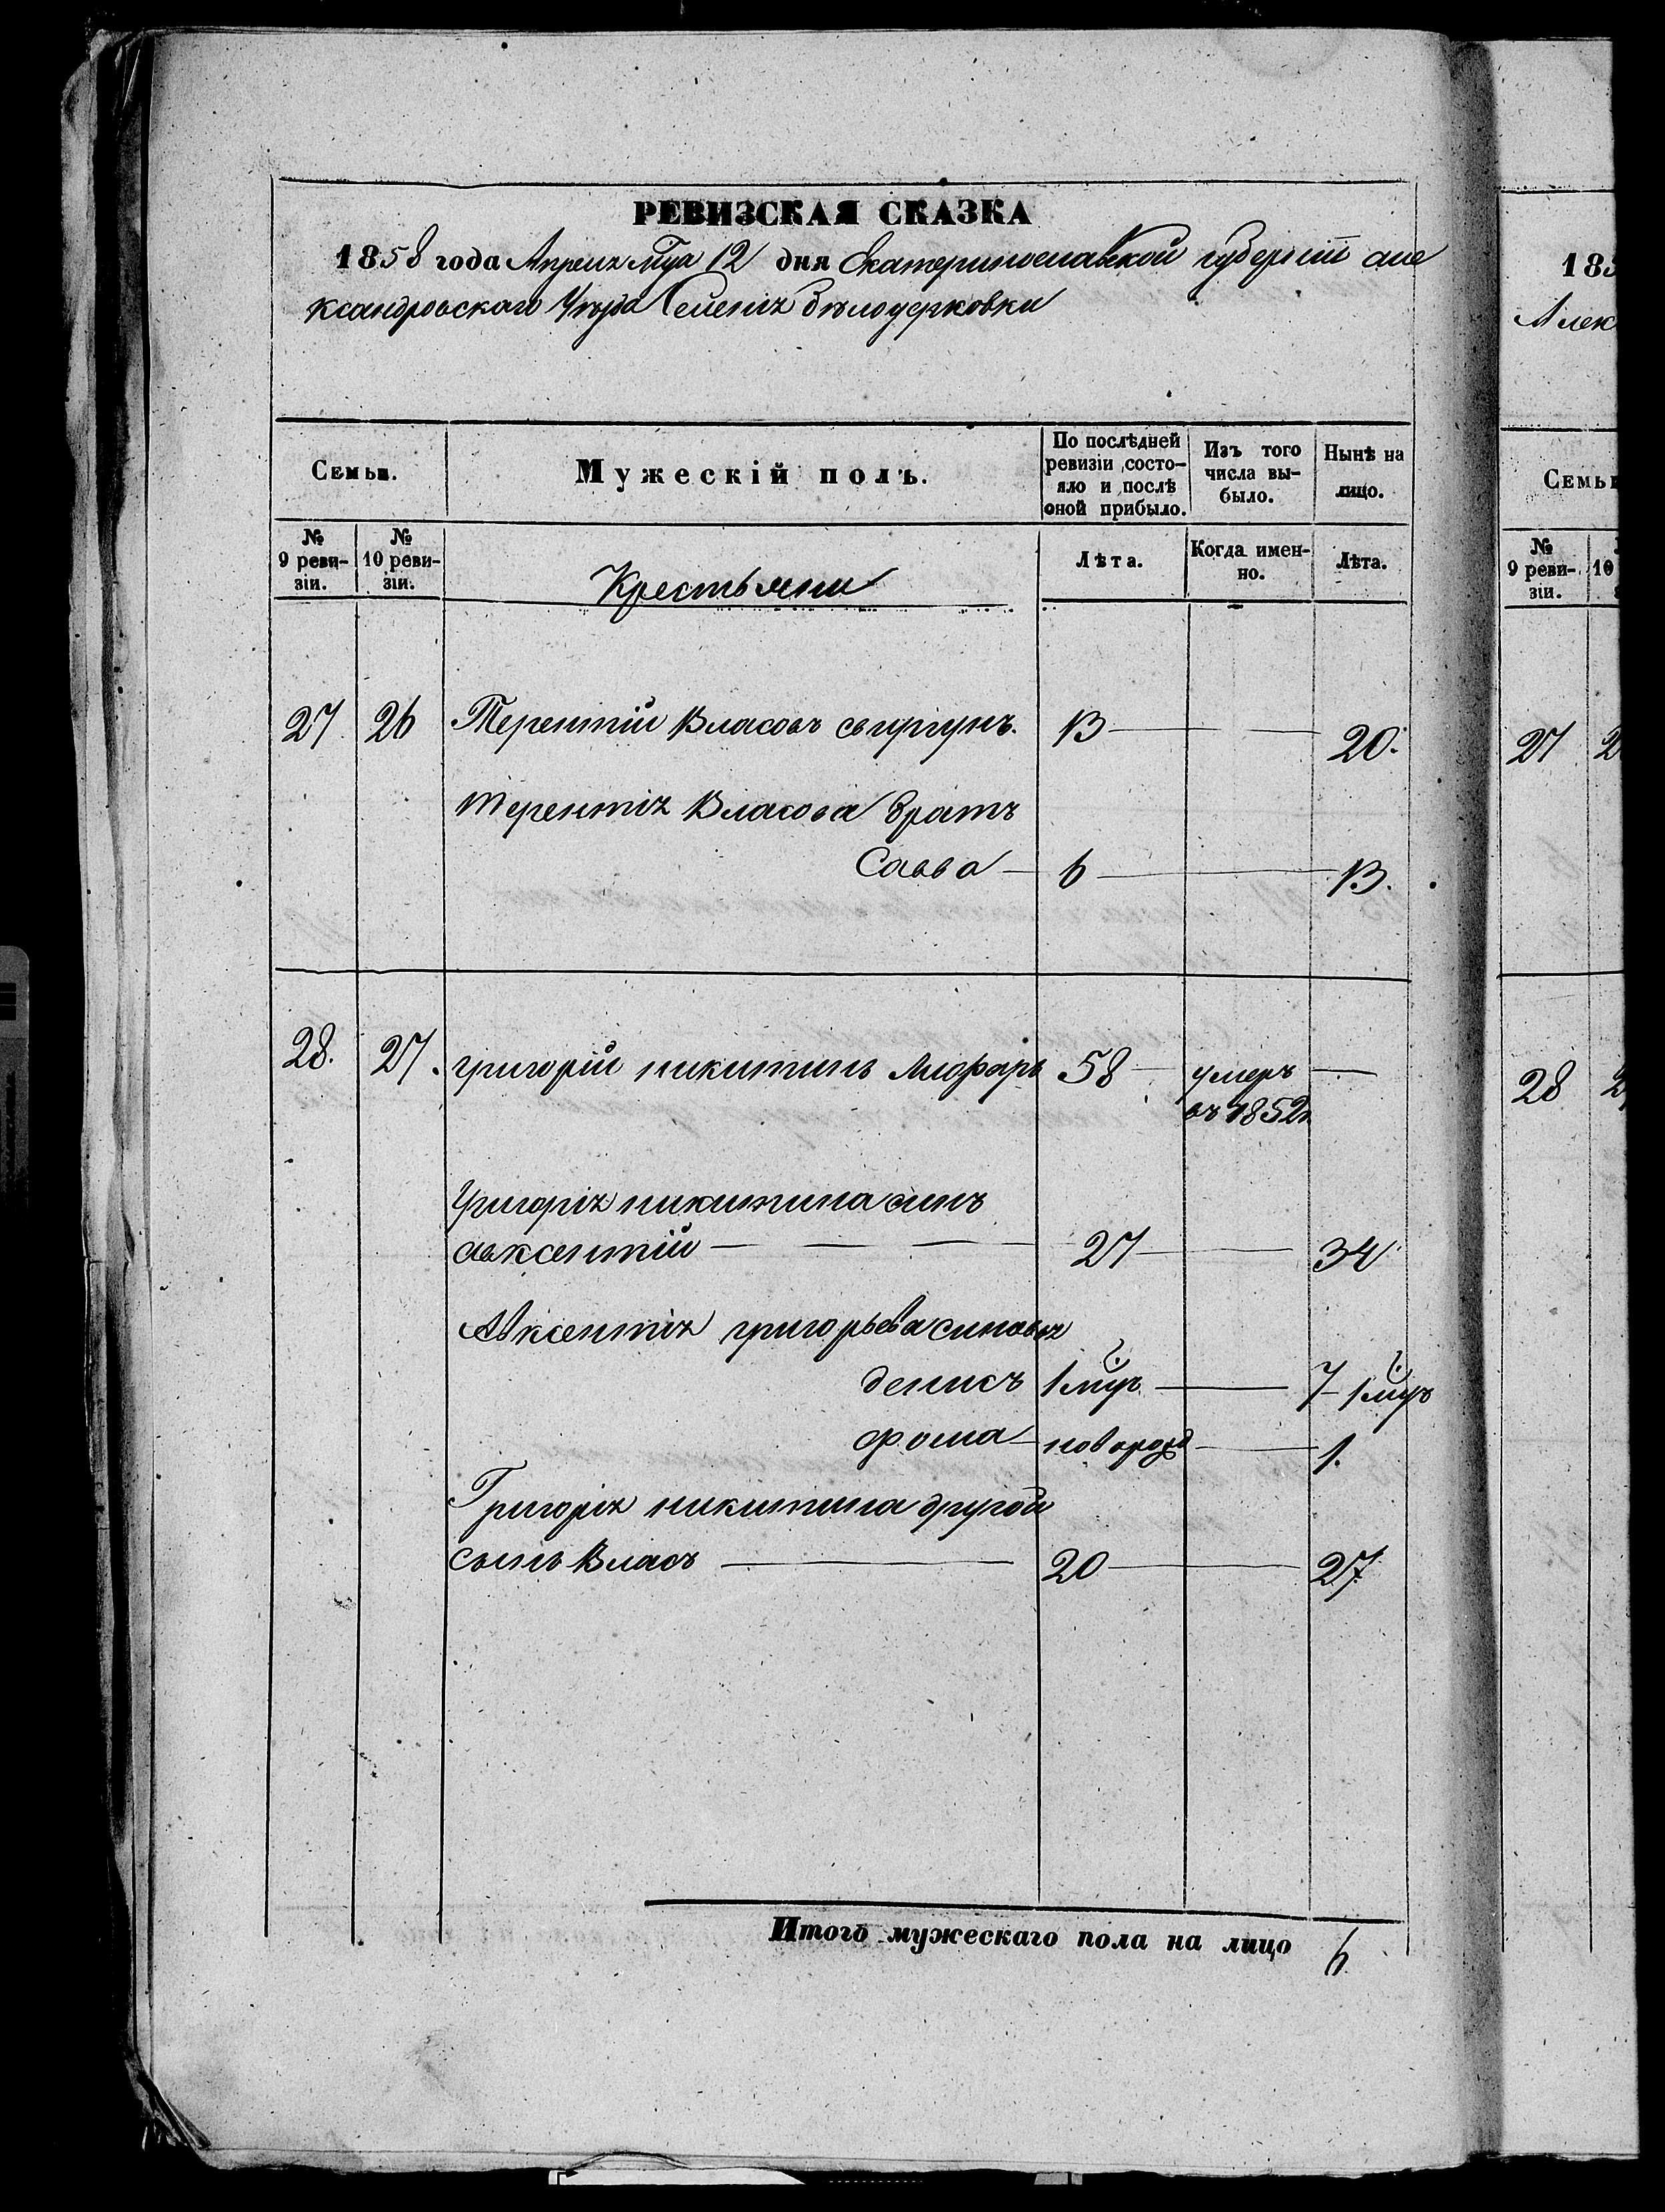 РЕВИЗСКАЯ СКАЗКА
1858 года Апреля мца 12 дня Екатеринославской губернии але
ксандровского Уезда Селения белоцерковки
Семьи.
Мужескій полъ.
По послѣдней ревизіи состо-
яло и послѣ
оной прибыло.
Изъ того
числа вы-
было.
Нынѣ на
лицо.
№
9 реви-
зіи.
№
10 реви-
зіи.
Крестьяни
Лѣта.
Когда имен-
но.
Лѣта.
27. 26 Терентій Власовъ 13 20.
терентія Власова братъ
Савва 6 13.
28. 27. григорій никитинъ 58 умеръ
въ 1852г.
Григорія никитина синъ
авксентій 27 34
Авксентія григорьева синовья
денисъ 1 мцъ 7 1 мцъ
фома новорозд 1.
Григорія никитина другой
сынъ Власъ 20 27
Итого мужескаго пола на лицо 6
183
Алек
Семьи
№
9 реви-
зіи.
10
27 2
28 2